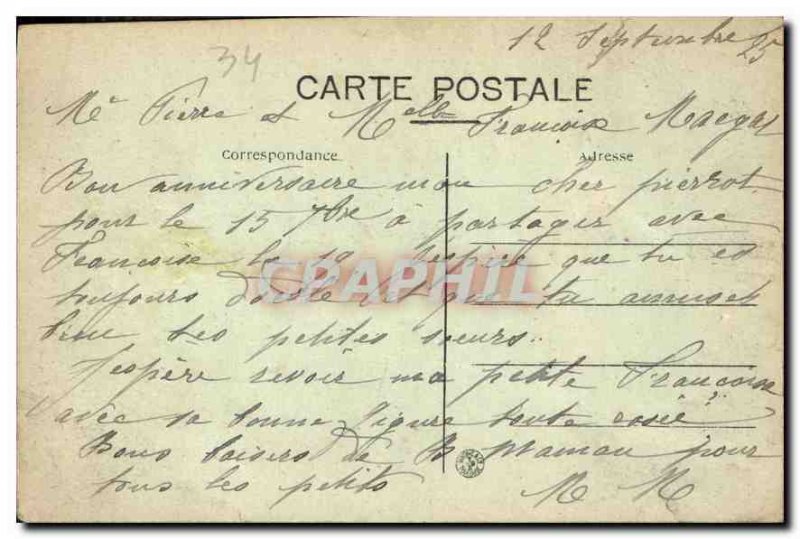 12 Septembre 25
34
CARTE POSTALE
Mr Pierre et Melle Françoise
Correspondance
Adresse
Bon anniversaire mon cher pierrot
pour le 15 7bre à partager avec
Françoise le 19 J'espère que tu es
toujours docile et que tu amuses
bien tes petites sœurs.
CPAPHIL
J'espère revoir ma petite Françoise
avec sa bonne figure toute rosée
Bons baisers de B maman pour
tous les petits
M M